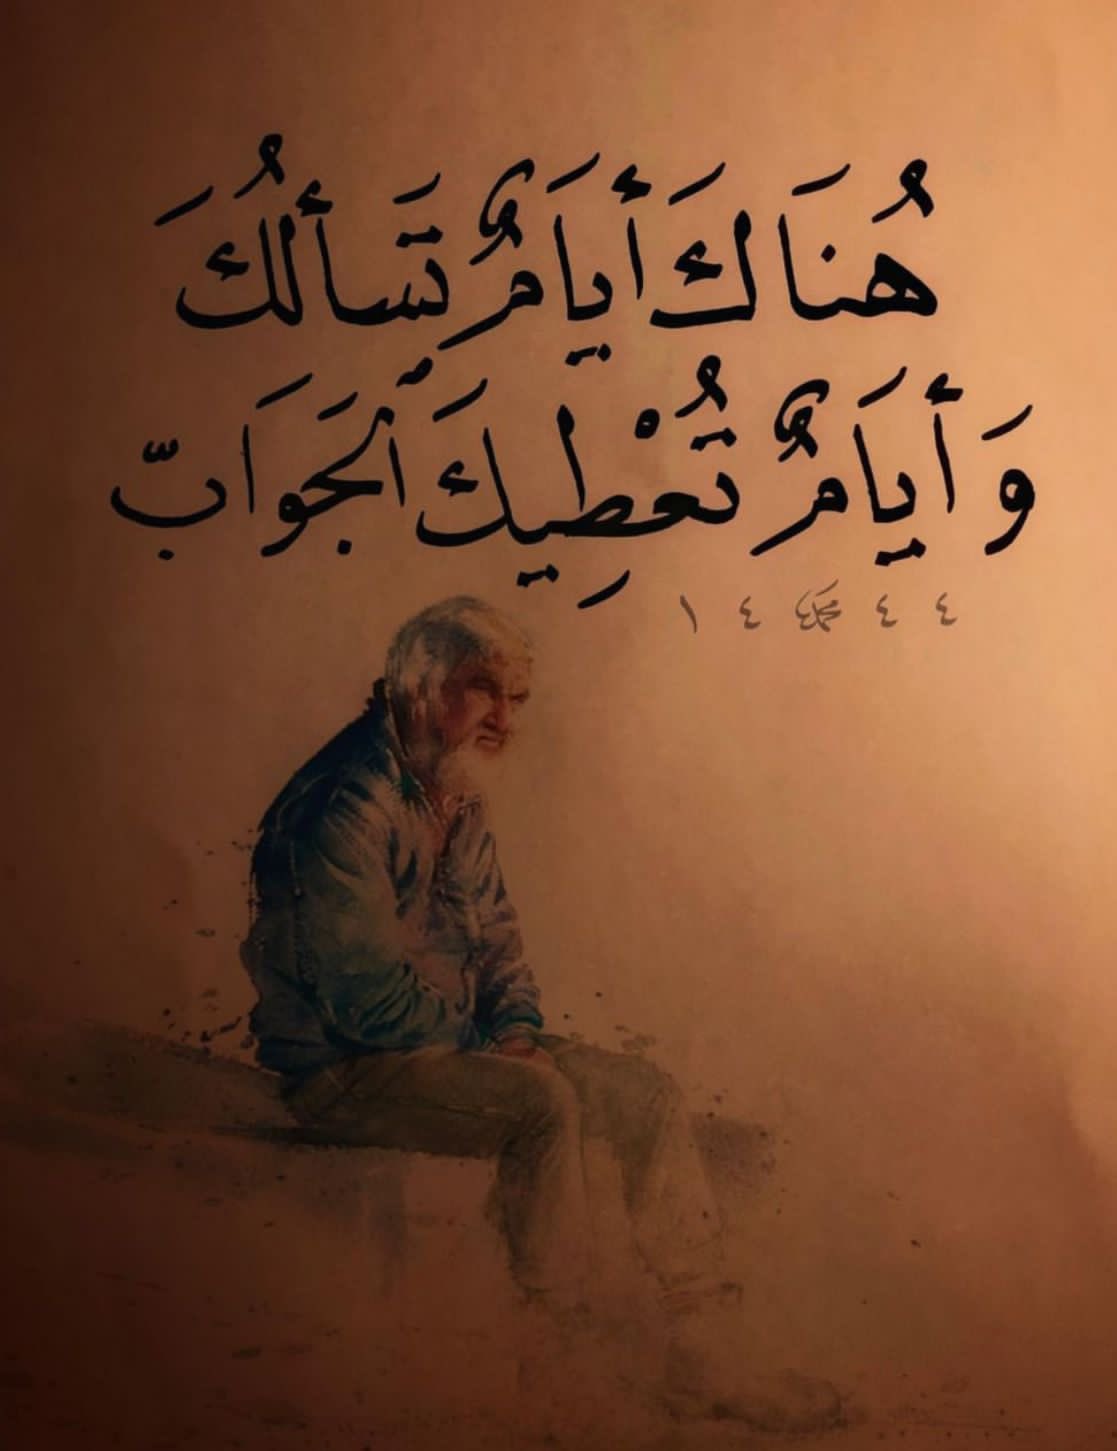 هُنَاكَ أَيَامٌ تَسَألُكَ
وَ أَيَامٌ تُعْطِيكَ ٱلْجَوَابّ
١٤ محمد ٤٤